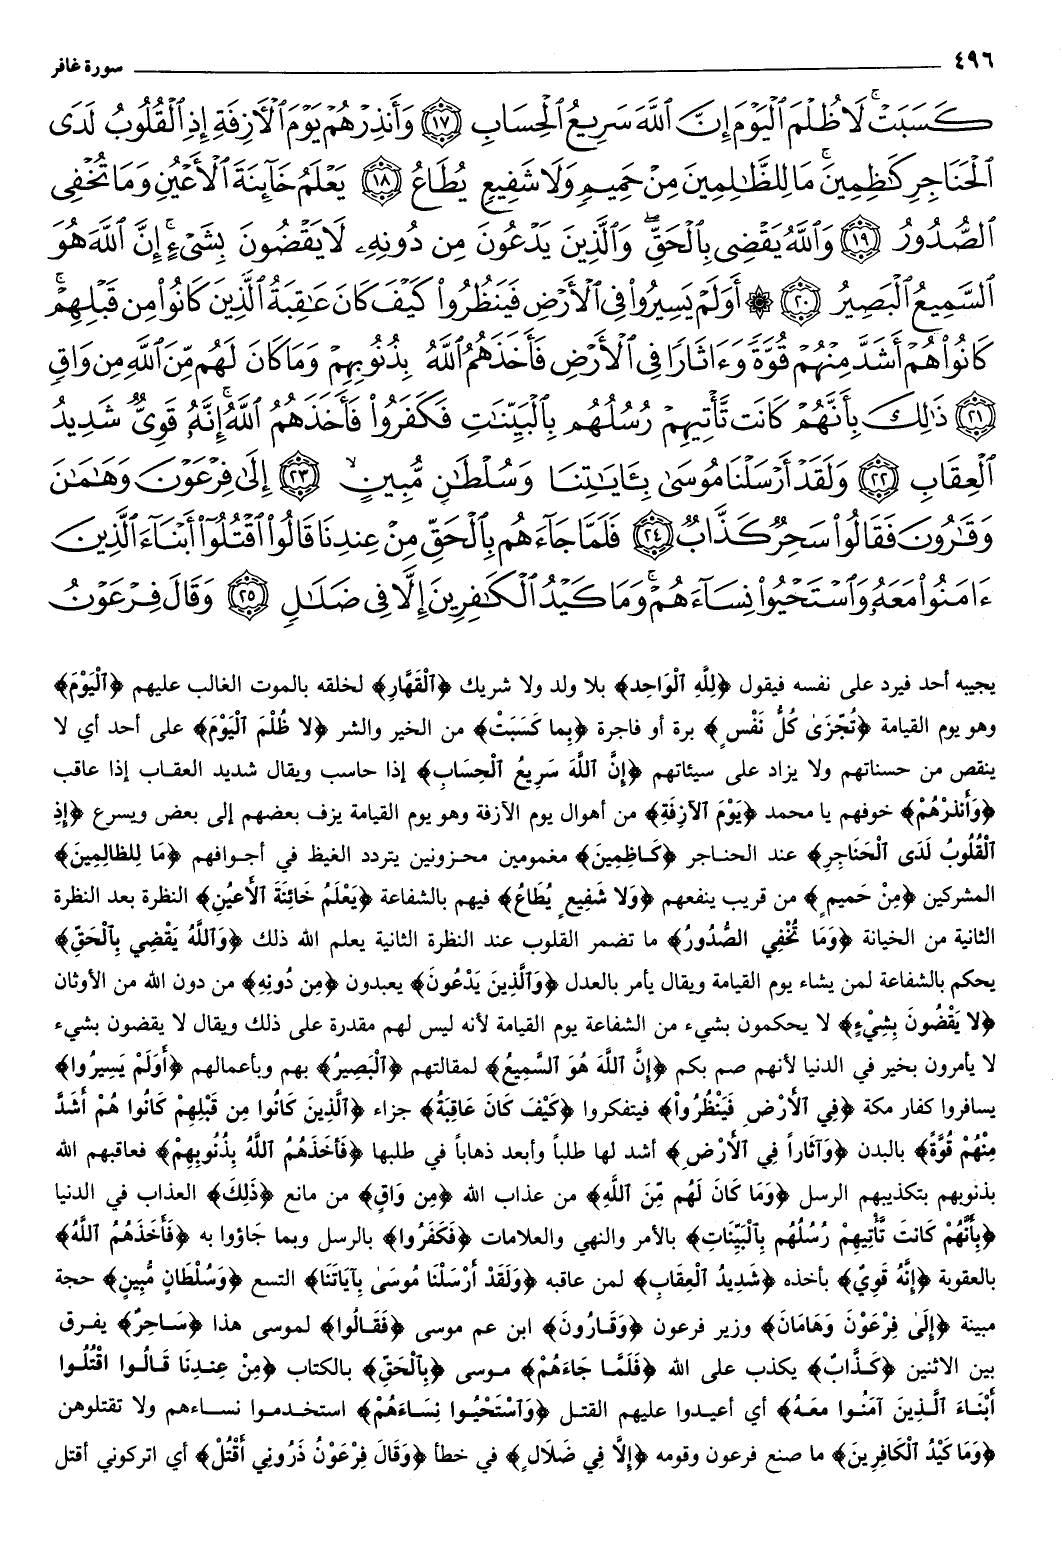 ٤٩٦ سورة غافر
كَسَبَتْ ۚ لَا ظُلْمَ ٱلْيَوْمَ إِنَّ ٱللَّهَ سَرِيعُ ٱلْحِسَابِ ١٧ وَأَنذِرْهُمْ يَوْمَ ٱلْأَزِفَةِ إِذِ ٱلْقُلُوبُ لَدَى
ٱلْحَنَاجِرِ كَٰظِمِينَ ۚ مَا لِلظَّٰلِمِينَ مِنْ حَمِيمٍ وَلَا شَفِيعٍ يُطَاعُ ١٨ يَعْلَمُ خَآئِنَةَ ٱلْأَعْيُنِ وَمَا تُخْفِى
ٱلصُّدُورُ ١٩ وَٱللَّهُ يَقْضِى بِٱلْحَقِّ ۖ وَٱلَّذِينَ يَدْعُونَ مِن دُونِهِۦ لَا يَقْضُونَ بِشَىْءٍ ۗ إِنَّ ٱللَّهَ هُوَ
ٱلسَّمِيعُ ٱلْبَصِيرُ ٢٠ ۞ أَوَلَمْ يَسِيرُوا۟ فِى ٱلْأَرْضِ فَيَنظُرُوا۟ كَيْفَ كَانَ عَٰقِبَةُ ٱلَّذِينَ كَانُوا۟ مِن قَبْلِهِمْ ۚ
كَانُوا۟ هُمْ أَشَدَّ مِنْهُمْ قُوَّةً وَءَاثَارًا فِى ٱلْأَرْضِ فَأَخَذَهُمُ ٱللَّهُ بِذُنُوبِهِمْ وَمَا كَانَ لَهُم مِّنَ ٱللَّهِ مِن وَاقٍ
٢١ ذَٰلِكَ بِأَنَّهُمْ كَانَت تَّأْتِيهِمْ رُسُلُهُم بِٱلْبَيِّنَٰتِ فَكَفَرُوا۟ فَأَخَذَهُمُ ٱللَّهُ ۚ إِنَّهُۥ قَوِىٌّ شَدِيدُ
ٱلْعِقَابِ ٢٢ وَلَقَدْ أَرْسَلْنَا مُوسَىٰ بِـَٔايَٰتِنَا وَسُلْطَٰنٍ مُّبِينٍ ۙ ٢٣ إِلَىٰ فِرْعَوْنَ وَهَٰمَٰنَ
وَقَٰرُونَ فَقَالُوا۟ سَٰحِرٌ كَذَّابٌ ٢٤ فَلَمَّا جَآءَهُم بِٱلْحَقِّ مِنْ عِندِنَا قَالُوا۟ ٱقْتُلُوٓا۟ أَبْنَآءَ ٱلَّذِينَ
ءَامَنُوا۟ مَعَهُۥ وَٱسْتَحْيُوا۟ نِسَآءَهُمْ ۚ وَمَا كَيْدُ ٱلْكَٰفِرِينَ إِلَّا فِى ضَلَٰلٍ ٢٥ وَقَالَ فِرْعَوْنُ
يجيبه أحد فيرد على نفسه فيقول ﴿لِلَّهِ ٱلْوَاحِدِ﴾ بلا ولد ولا شريك ﴿ٱلْقَهَّارِ﴾ لخلقه بالموت الغالب عليهم ﴿ٱلْيَوْمَ﴾
وهو يوم القيامة ﴿تُجْزَىٰ كُلُّ نَفْسٍ﴾ برة أو فاجرة ﴿بِما كَسَبَتْ﴾ من الخير والشر ﴿لا ظُلْمَ ٱلْيَوْمَ﴾ على أحد أي لا
ينقص من حسناتهم ولا يزاد على سيئاتهم ﴿إِنَّ ٱللَّهَ سَرِيعُ ٱلْحِسَابِ﴾ إذا حاسب ويقال شديد العقاب إذا عاقب
﴿وَأَنذِرْهُمْ﴾ خوفهم يا محمد ﴿يَوْمَ ٱلآزِفَةِ﴾ من أهوال يوم الآزفة وهو يوم القيامة يزف بعضهم إلى بعض ويسرع ﴿إِذِ
ٱلْقُلُوبُ لَدَى ٱلْحَنَاجِرِ﴾ عند الحناجر ﴿كَاظِمِينَ﴾ مغمومين محزونين يتردد الغيظ في أجوافهم ﴿مَا لِلظالِمِينَ﴾
المشركين ﴿مِنْ حَمِيمٍ﴾ من قريب ينفعهم ﴿وَلا شَفِيعٍ يُطَاعُ﴾ فيهم بالشفاعة ﴿يَعْلَمُ خَائِنَةَ ٱلأَعيُنِ﴾ النظرة بعد النظرة
الثانية من الخيانة ﴿وَمَا تُخْفِي ٱلصُّدُورُ﴾ ما تضمر القلوب عند النظرة الثانية يعلم الله ذلك ﴿وَٱللَّهُ يَقْضِي بِٱلْحَقِّ﴾
يحكم بالشفاعة لمن يشاء يوم القيامة ويقال يأمر بالعدل ﴿وَٱلَّذِينَ يَدْعُونَ﴾ يعبدون ﴿مِن دُونِهِ﴾ من دون الله من الأوثان
﴿لا يَقْضُونَ بِشَيْءٍ﴾ لا يحكمون بشيء من الشفاعة يوم القيامة لأنه ليس لهم مقدرة على ذلك ويقال لا يقضون بشيء
لا يأمرون بخير في الدنيا لأنهم صم بكم ﴿إِنَّ ٱللَّهَ هُوَ ٱلسَّمِيعُ﴾ لمقالتهم ﴿ٱلْبَصِيرُ﴾ بهم وبأعمالهم ﴿أَوَلَمْ يَسِيرُوا﴾
يسافروا كفار مكة ﴿فِي ٱلأَرْضِ فَيَنْظُرُواْ﴾ فيتفكروا ﴿كَيْفَ كَانَ عَاقِبَةُ﴾ جزاء ﴿ٱلَّذِينَ كَانُوا مِن قَبْلِهِمْ كَانُوا هُمْ أَشَدَّ
مِنْهُمْ قُوَّةً﴾ بالبدن ﴿وَآثَاراً فِي ٱلأَرْضِ﴾ أشد لها طلباً وأبعد ذهاباً في طلبها ﴿فَأَخَذَهُمُ ٱللَّهُ بِذُنُوبِهِمْ﴾ فعاقبهم الله
بذنوبهم بتكذيبهم الرسل ﴿وَمَا كَانَ لَهُم مِّنَ ٱللَّهِ﴾ من عذاب الله ﴿مِن وَاقٍ﴾ من مانع ﴿ذَلِكَ﴾ العذاب في الدنيا
﴿بِأَنَّهُمْ كَانَت تَّأْتِيهِمْ رُسُلُهُم بِٱلْبَيِّنَاتِ﴾ بالأمر والنهي والعلامات ﴿فَكَفَرُوا﴾ بالرسل وبما جَاؤوا به ﴿فَأَخَذَهُمُ ٱللَّهُ﴾
بالعقوبة ﴿إِنَّهُ قَوِيٌ﴾ بأخذه ﴿شَدِيدُ ٱلعِقَابِ﴾ لمن عاقبه ﴿وَلَقَدْ أَرْسَلْنَا مُوسَىٰ بِآيَاتَنَا﴾ التسع ﴿وَسُلْطَانٍ مُّبِينٍ﴾ حجة
مبينة ﴿إِلَىٰ فِرْعَوْنَ وَهَامَانَ﴾ وزير فرعون ﴿وَقَارُونَ﴾ ابن عم موسى ﴿فَقَالُوا﴾ لموسى هذا ﴿سَاحِرٌ﴾ يفرق
بين الاثنين ﴿كَذَّابٌ﴾ يكذب على الله ﴿فَلَمَّا جَاءَهُمْ﴾ موسى ﴿بِٱلْحَقِّ﴾ بالكتاب ﴿مِنْ عِندِنَا قَالُوا ٱقْتُلُوا
أَبْنَاءَ ٱلَّذِينَ آمَنُوا مَعَهُ﴾ أي أعيدوا عليهم القتل ﴿وَٱسْتَحْيُوا نِسَاءَهُمْ﴾ استخدموا نساءهم ولا تقتلوهن
﴿وَمَا كَيْدُ ٱلْكَافِرِينَ﴾ ما صنع فرعون وقومه ﴿إِلاَّ فِي ضَلَالٍ﴾ في خطأ ﴿وَقَالَ فِرْعَوْنُ ذَرُونِي أَقْتُلْ﴾ أي اتركوني أقتل